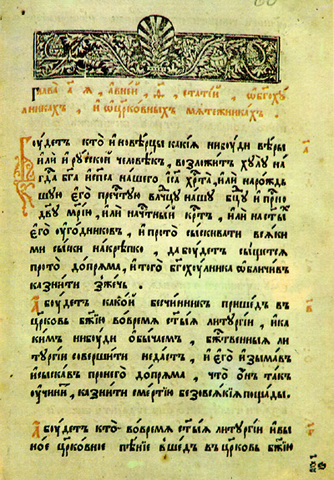 Глава а҃ ѧ , авней , ѳ҃ , статей , ѡбг҃оху
лникахъ , и ѡцр҃ковныхъ мѧтежникахъ .
Боудетъ кто иновѣрцы какїѧ нибоуди вѣры
или и роуской человѣкъ , возложитъ хулу на
гд҃а бг҃а испс҃а нашего іс҃а хрт҃а , или нарождь
шую его пречт҃ую влчц҃у нашу бц҃у и присно
дв҃у мр҃їю , или начт҃ный крт҃ъ , или насты҃х
его оугодниковъ , и прото сыскивати всѧки
ми сыски накрѣпко , дабоудетъ сыщетсѧ
прото допрѧма , итого бг҃охоулника ѡбличивъ
казнити зжечь .
А боудетъ какой бесчинникъ пришедъ въ
цр҃ковь бж҃їю вовремѧ ст҃ыѧ литургїи , ика
кимъ нибоуди обычаемъ , бж҃ественныѧ ли
тургїи совершити недастъ , и его изымавъ
исыскавъ пронего допрѧма , что онъ такъ
оучинитъ , казнити смертїю безовсѧкїѧ пощады .
А боудетъ кто вовремѧ ст҃ыѧ литургїи ивы
ное цр҃ковное пѣнїе вшедъ въцр҃ковь бж҃їю